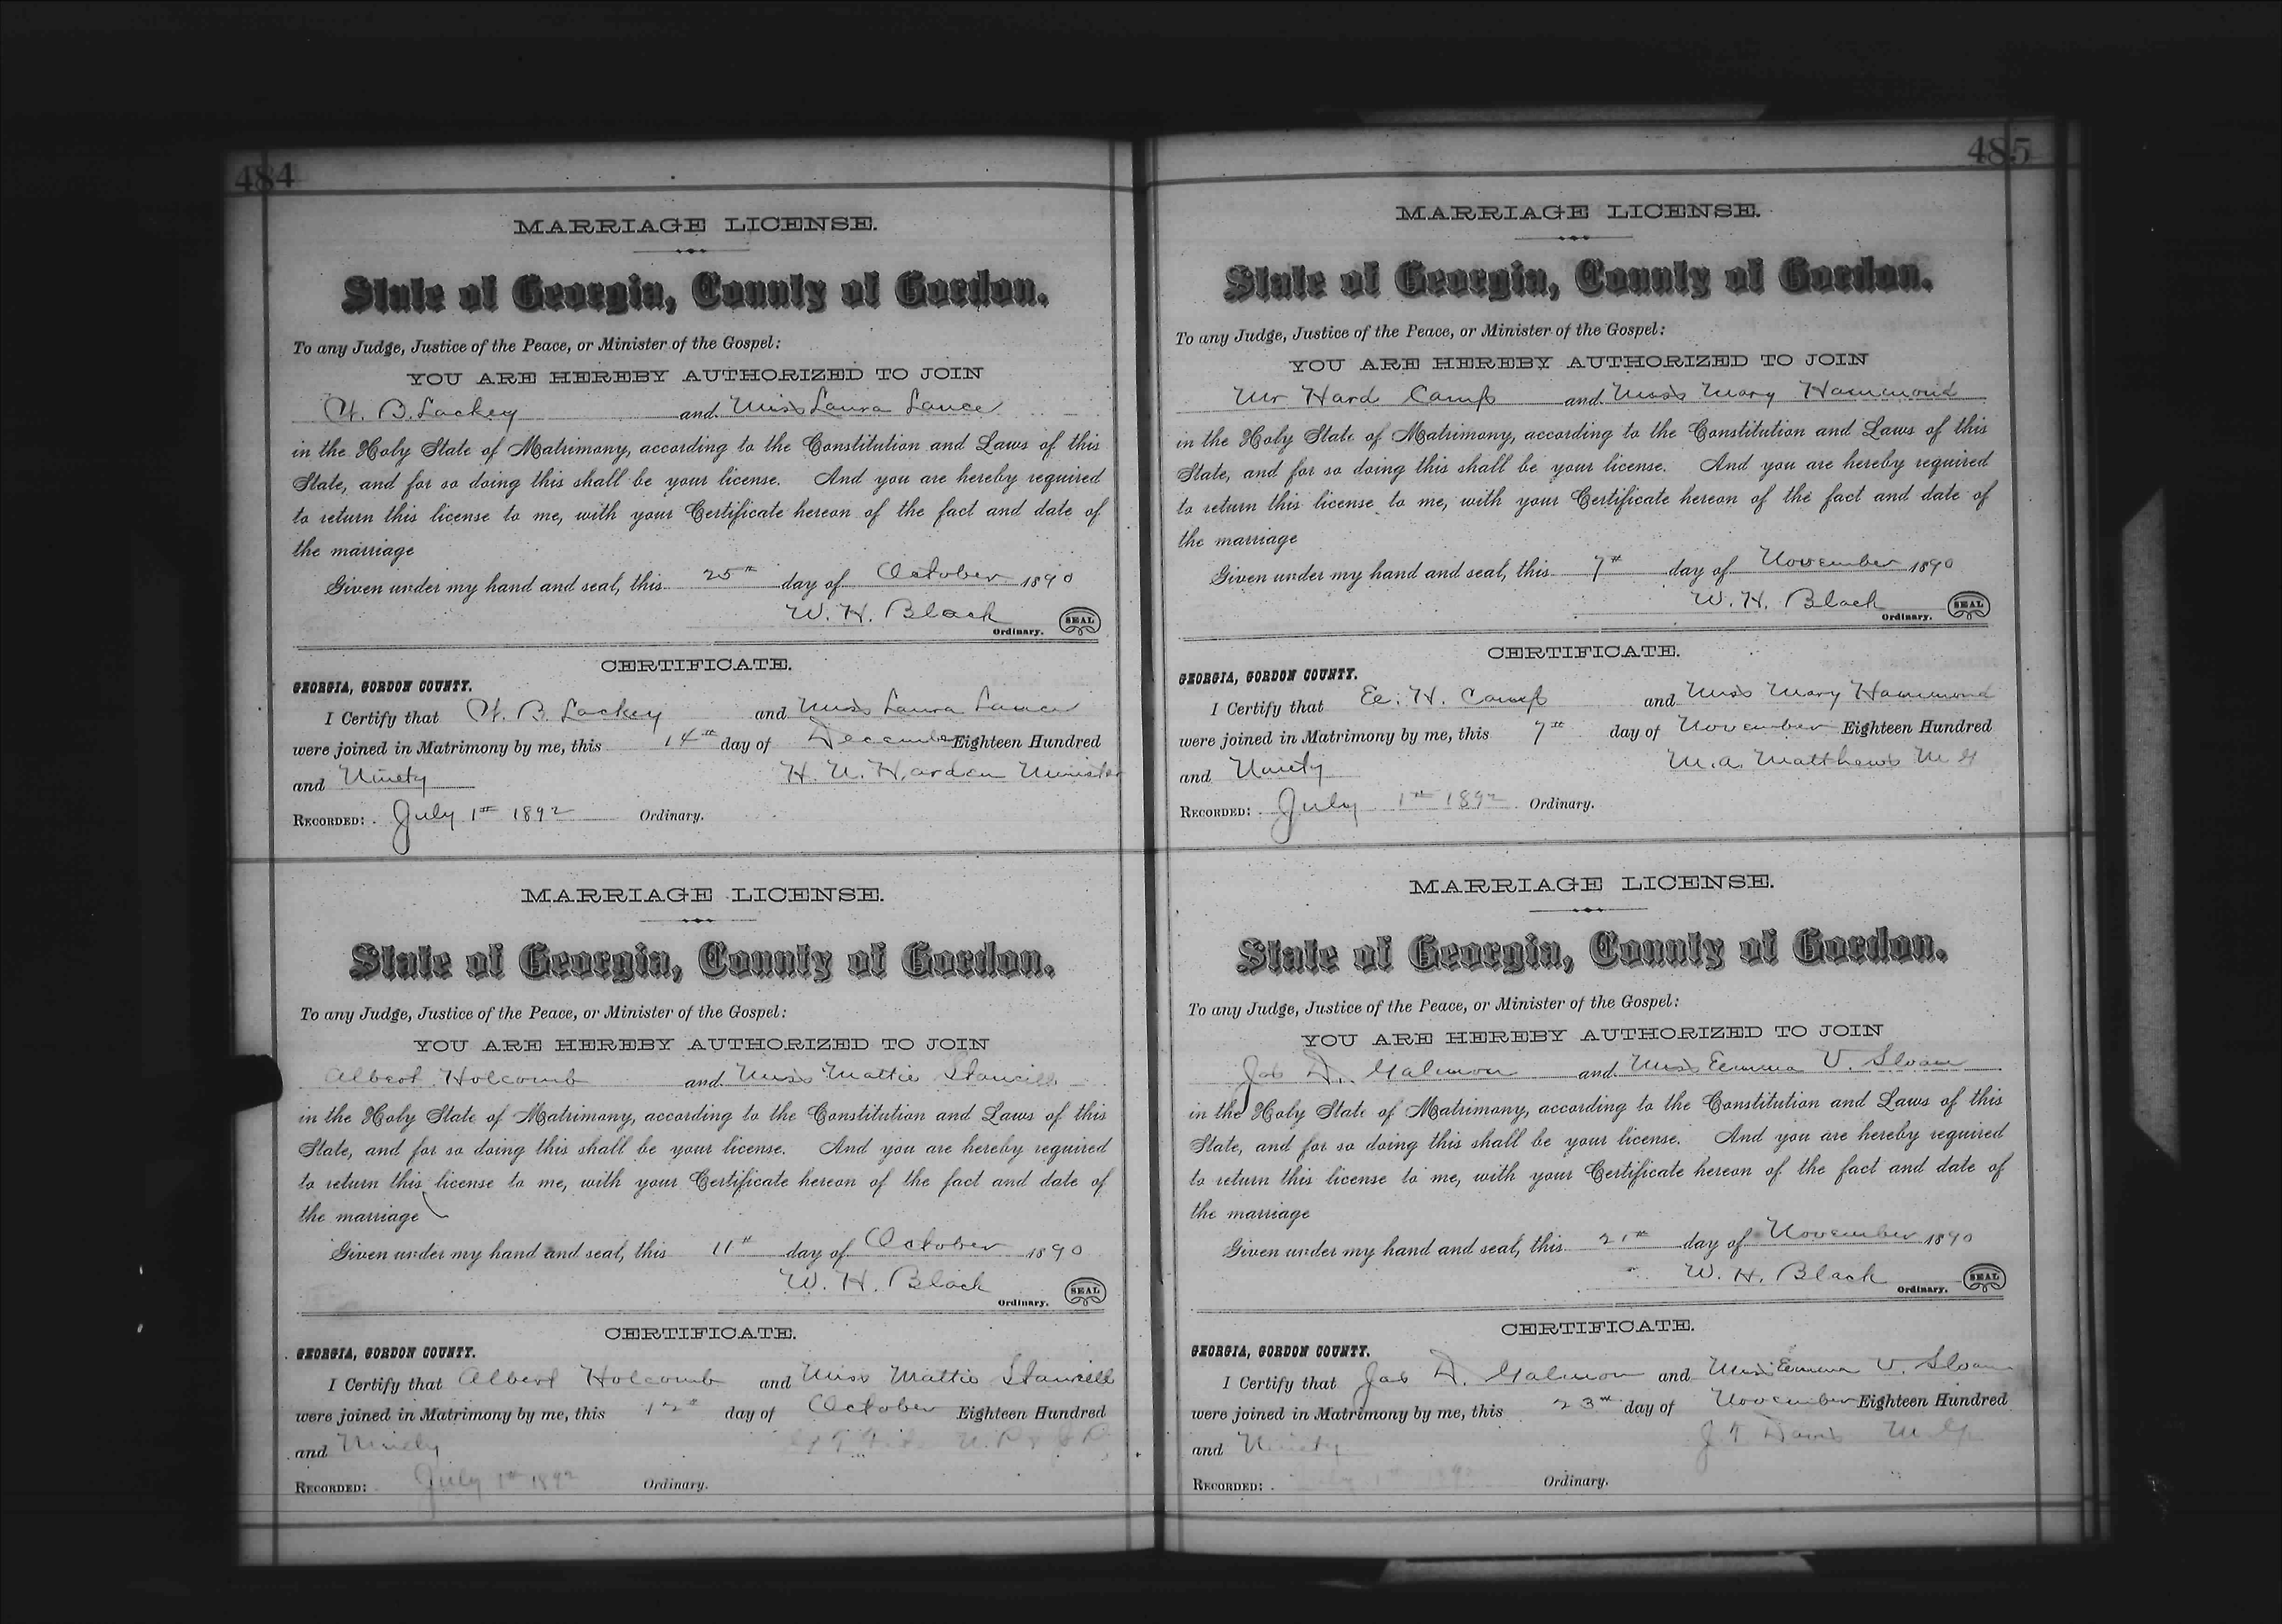 484
MARRIAGE LICENSE.
State of Georgia, County of Gordon.
To any Judge, Justice of the Peace, or Minister of the Gospel:
YOU ARE HEREBY AUTHORIZED TO JOIN
B. Lackey and Miss Laura Lance
in the Holy State of Matrimony, according to the Constitution and Laws of this
State, and for so doing this shall be your license. And you are hereby required
to return this license to me, with your Certificate hereon of the fact and date of
the marriage
Given under my hand and seal, this 25th day of October 1890
W. H. Black
Ordinary. SEAL
CERTIFICATE.
GEORGIA, GORDON COUNTY.
I Certify that B. Lackey and Miss Laura Lance
were joined in Matrimony by me, this 14th day of December Eighteen Hundred
and Ninety H. N. Harden Minister
RECORDED: July 1st 1892 Ordinary.
MARRIAGE LICENSE.
State of Georgia, County of Gordon.
To any Judge, Justice of the Peace, or Minister of the Gospel:
YOU ARE HEREBY AUTHORIZED TO JOIN
Albert Holcomb and Miss Mattie Stancill
in the Holy State of Matrimony, according to the Constitution and Laws of this
State, and for so doing this shall be your license. And you are hereby required
to return this license to me, with your Certificate hereon of the fact and date of
the marriage
Given under my hand and seal, this 11th day of October 1890
W. H. Black
Ordinary. SEAL
CERTIFICATE.
GEORGIA, GORDON COUNTY.
I Certify that Albert Holcomb and Miss Mattie Stancill
were joined in Matrimony by me, this 12th day of October Eighteen Hundred
and Ninety
RECORDED: July 1st 1892 Ordinary.
485
MARRIAGE LICENSE.
State of Georgia, County of Gordon.
To any Judge, Justice of the Peace, or Minister of the Gospel:
YOU ARE HEREBY AUTHORIZED TO JOIN
Mr Hard Camp and Miss Mary Hammond
in the Holy State of Matrimony, according to the Constitution and Laws of this
State, and for so doing this shall be your license. And you are hereby required
to return this license to me, with your Certificate hereon of the fact and date of
the marriage
Given under my hand and seal, this 7th day of November 1890
W. H. Black
Ordinary. SEAL
CERTIFICATE.
GEORGIA, GORDON COUNTY.
I Certify that H. Camp and Miss Mary Hammond
were joined in Matrimony by me, this 7th day of November Eighteen Hundred
and Ninety M. A. Matthews M G
RECORDED: July 1st 1892 Ordinary.
MARRIAGE LICENSE.
State of Georgia, County of Gordon.
To any Judge, Justice of the Peace, or Minister of the Gospel:
YOU ARE HEREBY AUTHORIZED TO JOIN
Jas D. Galmon and Miss Emma V. Sloan
in the Holy State of Matrimony, according to the Constitution and Laws of this
State, and for so doing this shall be your license. And you are hereby required
to return this license to me, with your Certificate hereon of the fact and date of
the marriage
Given under my hand and seal, this 21st day of November 1890
W. H. Black
Ordinary. SEAL
CERTIFICATE.
GEORGIA, GORDON COUNTY.
I Certify that Jas D. Galmon and Miss Emma V. Sloan
were joined in Matrimony by me, this 23rd day of November Eighteen Hundred
and Ninety J. T. Davis M G
RECORDED: July 1st 1892 Ordinary.